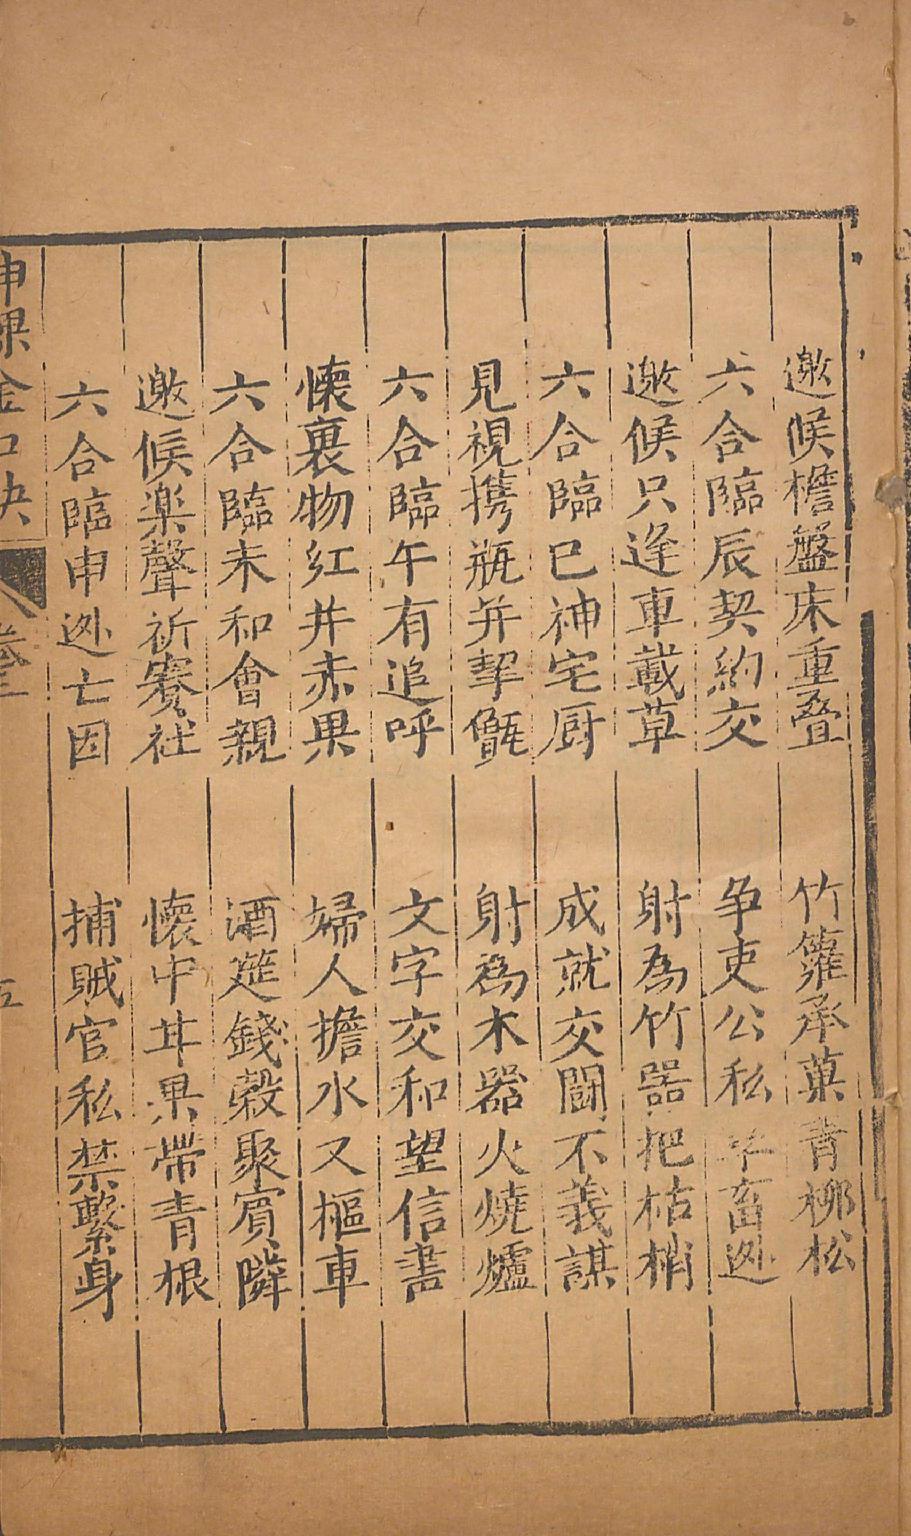 邀候檐盤床重疊　竹籮承菓青柳松
六合臨辰契約交　争吏公私羊畜迯
邀候只逢車載草　射為竹器把枯梢
六合臨巳神宅厨　成就交關不義謀
見視携瓶并挈甑　射為木器火燒爐
六合臨午有追呼　文字交和望信書
懷裏物紅井赤果　婦人擔水又樞車
六合臨未和會親　酒筵錢穀聚賓隣
邀候楽聲祈賽社　懷中并果帶青根
六合臨申迯亡因　捕賊官私禁繫身
申課金口決　卷三　五